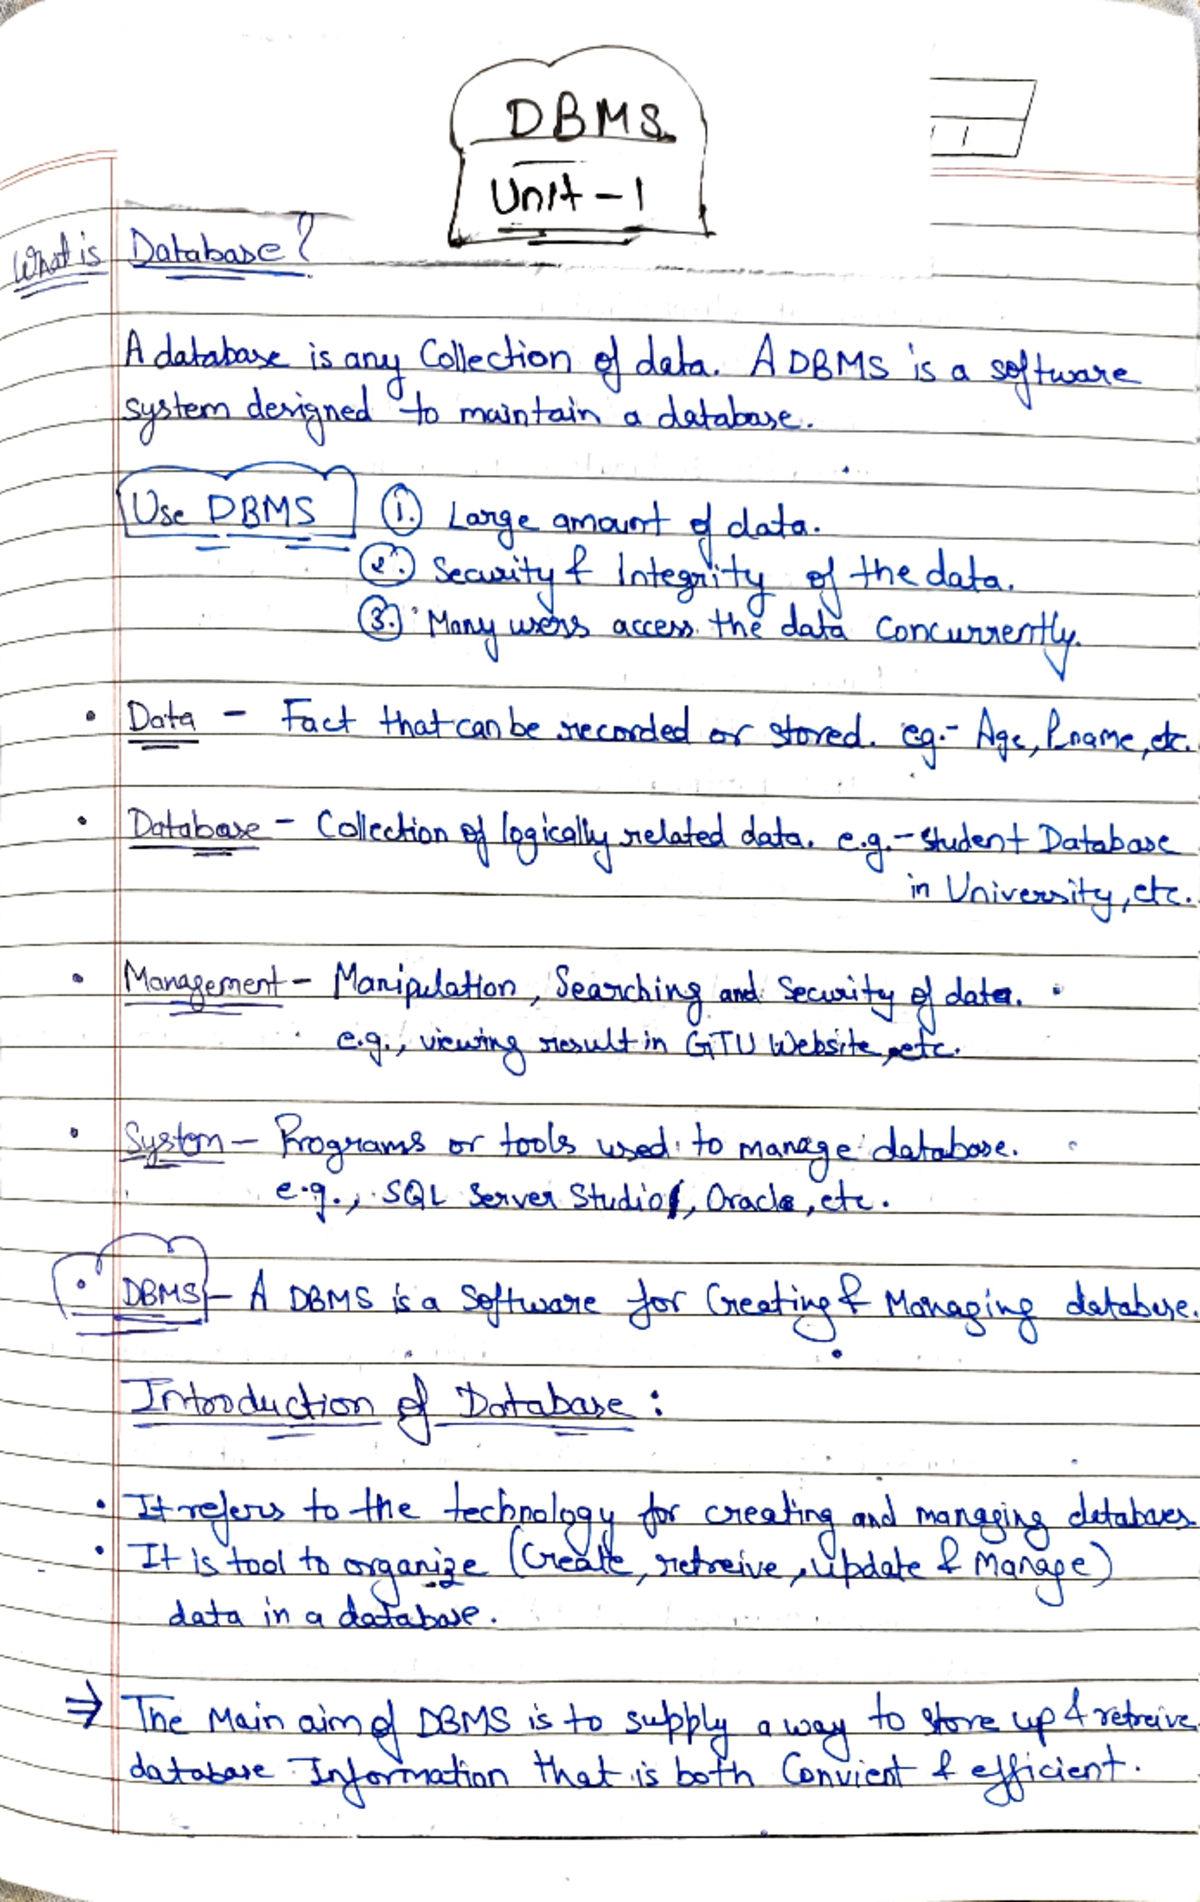 DBMS
Unit-1
What is Database?
A database is any Collection of data. A DBMS is a software
system designed to maintain a database.
Use DBMS 1. Large amount of data.
2. Security & Integrity of the data.
3. Many users access the data Concurrently.
• Data - Fact that can be recorded or stored. eg.- Age, Pname, etc.
• Database - Collection of logically related data. e.g.- Student Database
in University, etc.
• Management - Manipulation, Searching and Security of data.
e.g., viewing result in GTU Website, etc.
• System - Programs or tools used to manage database.
e.g., SQL Server Studio, Oracle, etc.
• DBMS - A DBMS is a Software for Creating & Managing database.
Introduction of Database :
• It refers to the technology for creating and managing databases
• It is tool to organize (Create, retreive, update & Manage)
data in a database.
⇒ The Main aim of DBMS is to supply a way to store up & retreive
database Information that is both Convient & efficient.